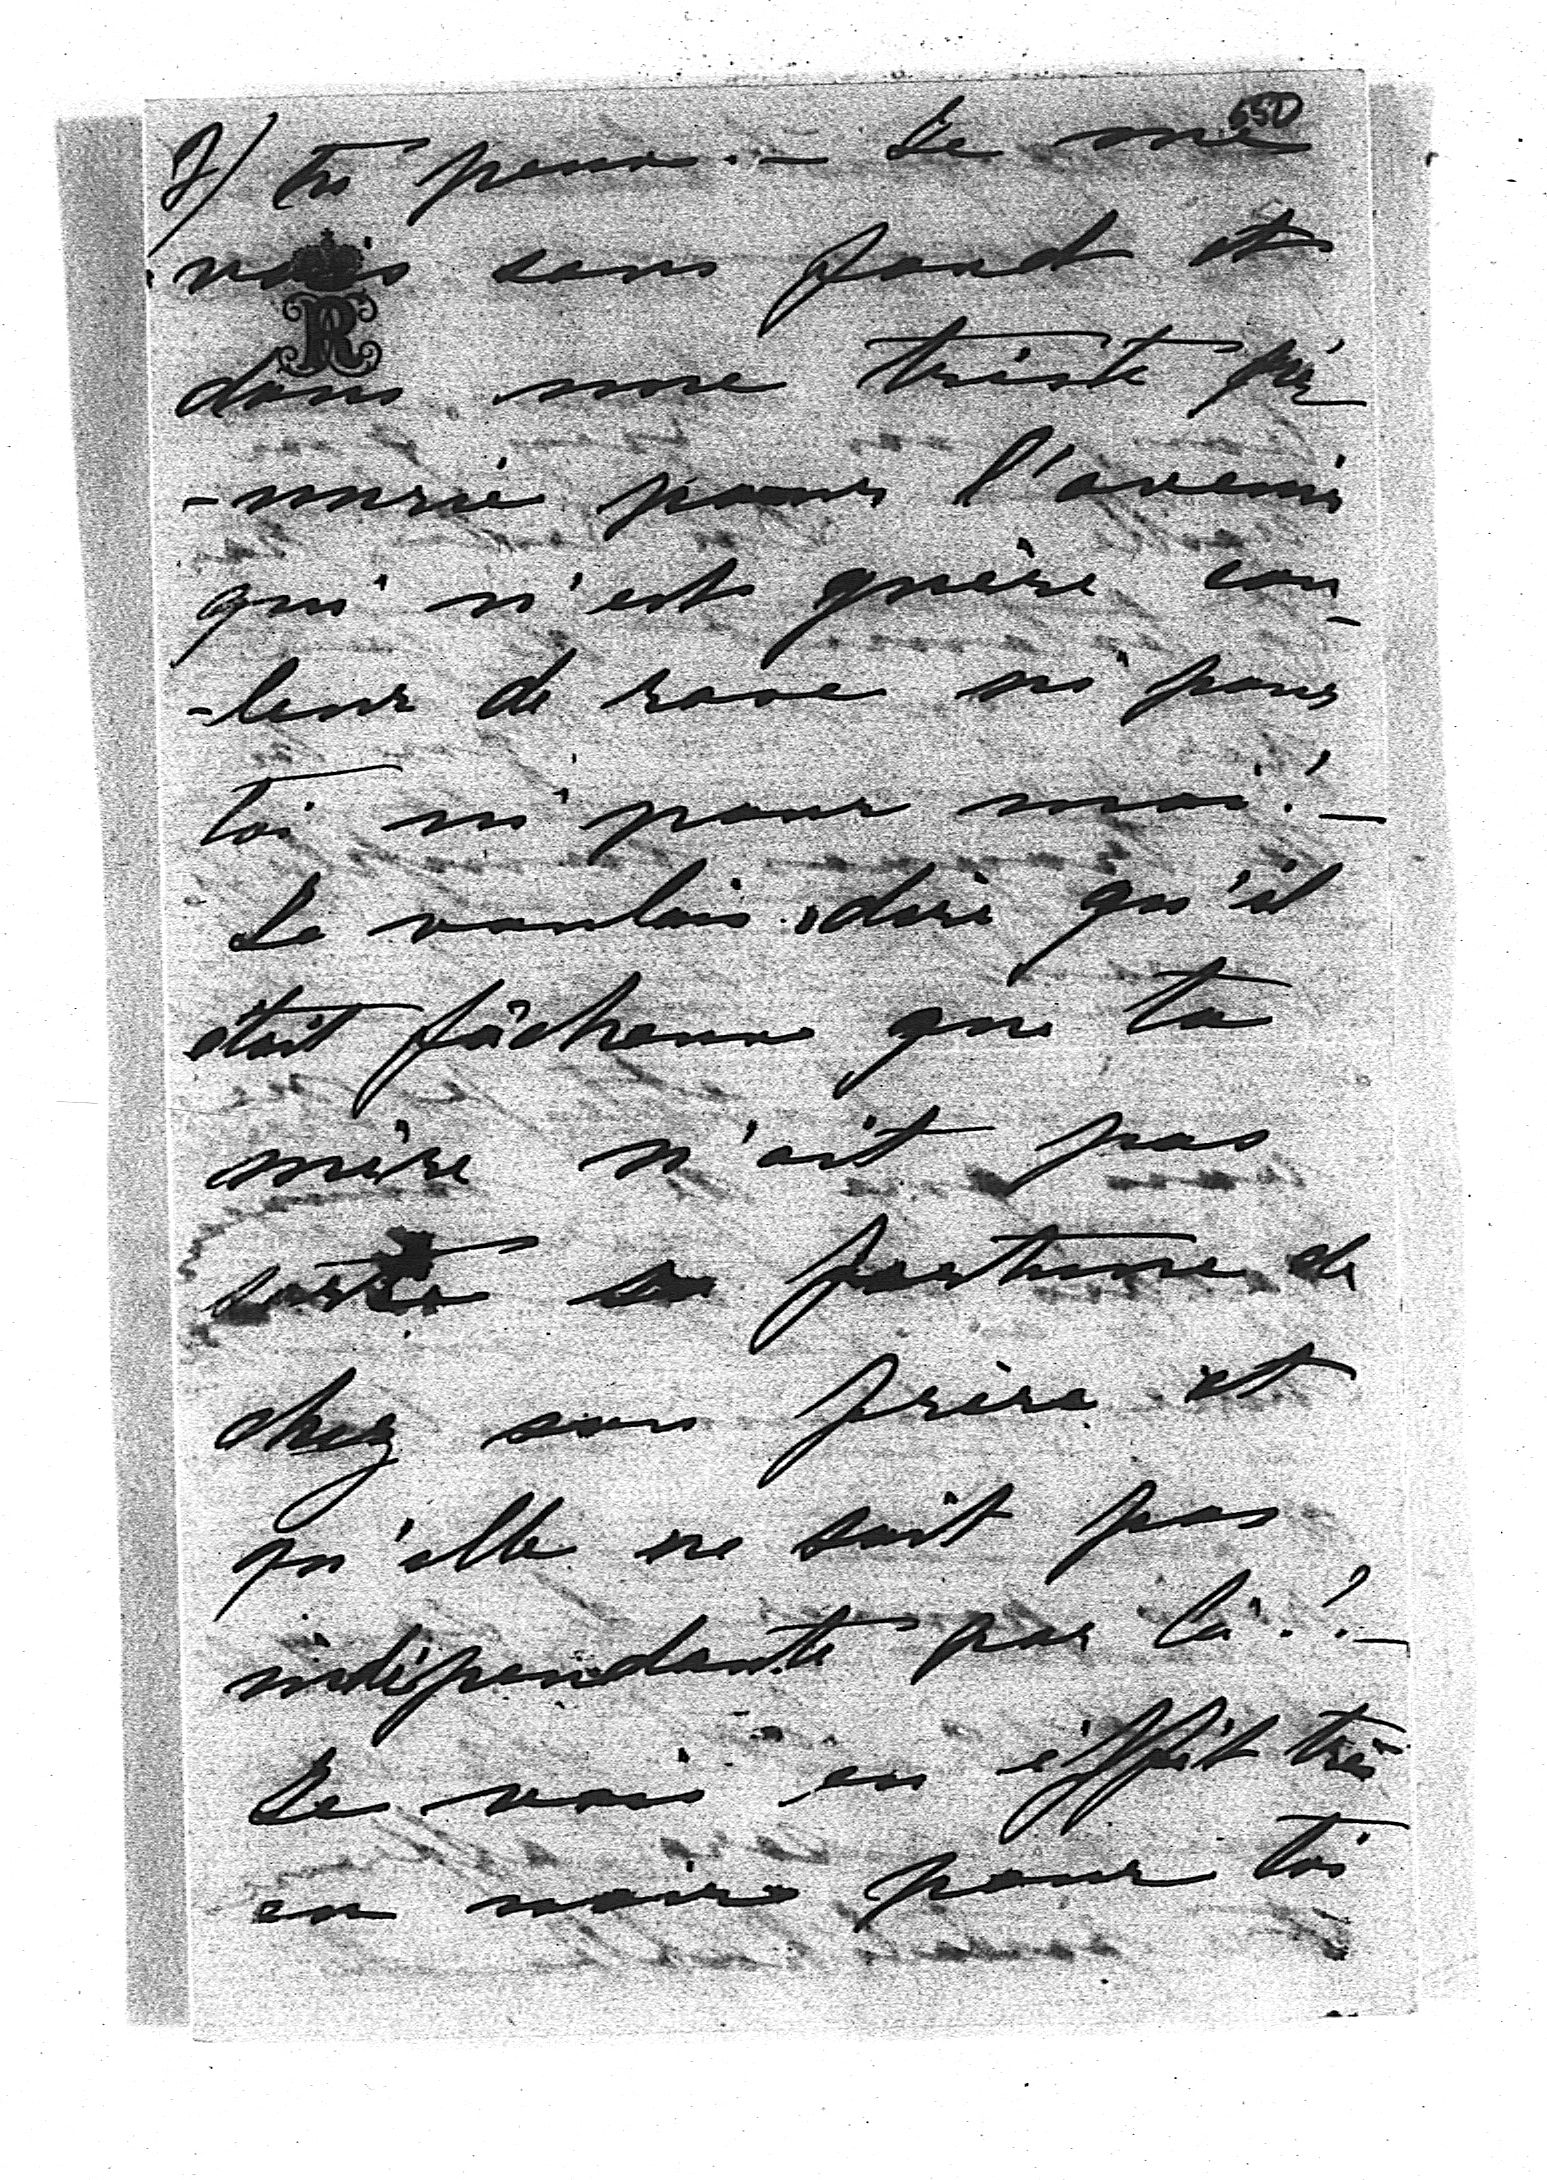 7) tu peux. – Je me
vois sans fond et
dans une triste pé
-nurie pour l'avenir
qui n'est guère cou
-leur de rose ni pour
toi ni pour moi! –
Je voulais dire qu'il
était fâcheux que ta
mère n'ait pas
sortie sa fortune de
chez son frère et
qu'elle ne soit pas
indépendante par là! –
Je vois en effêt très
en noire pour toi